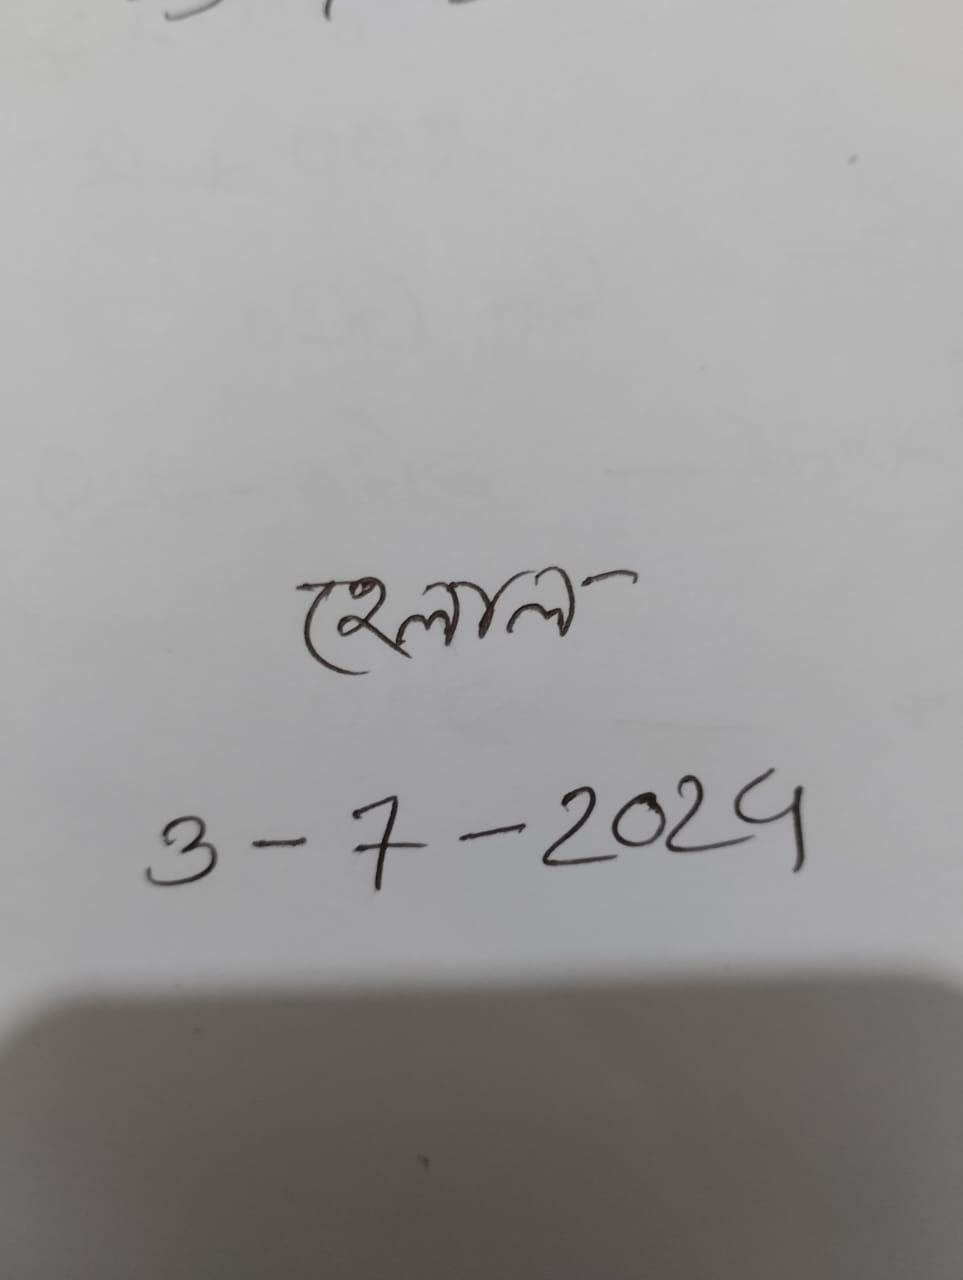 হেলাল
3-7-2024